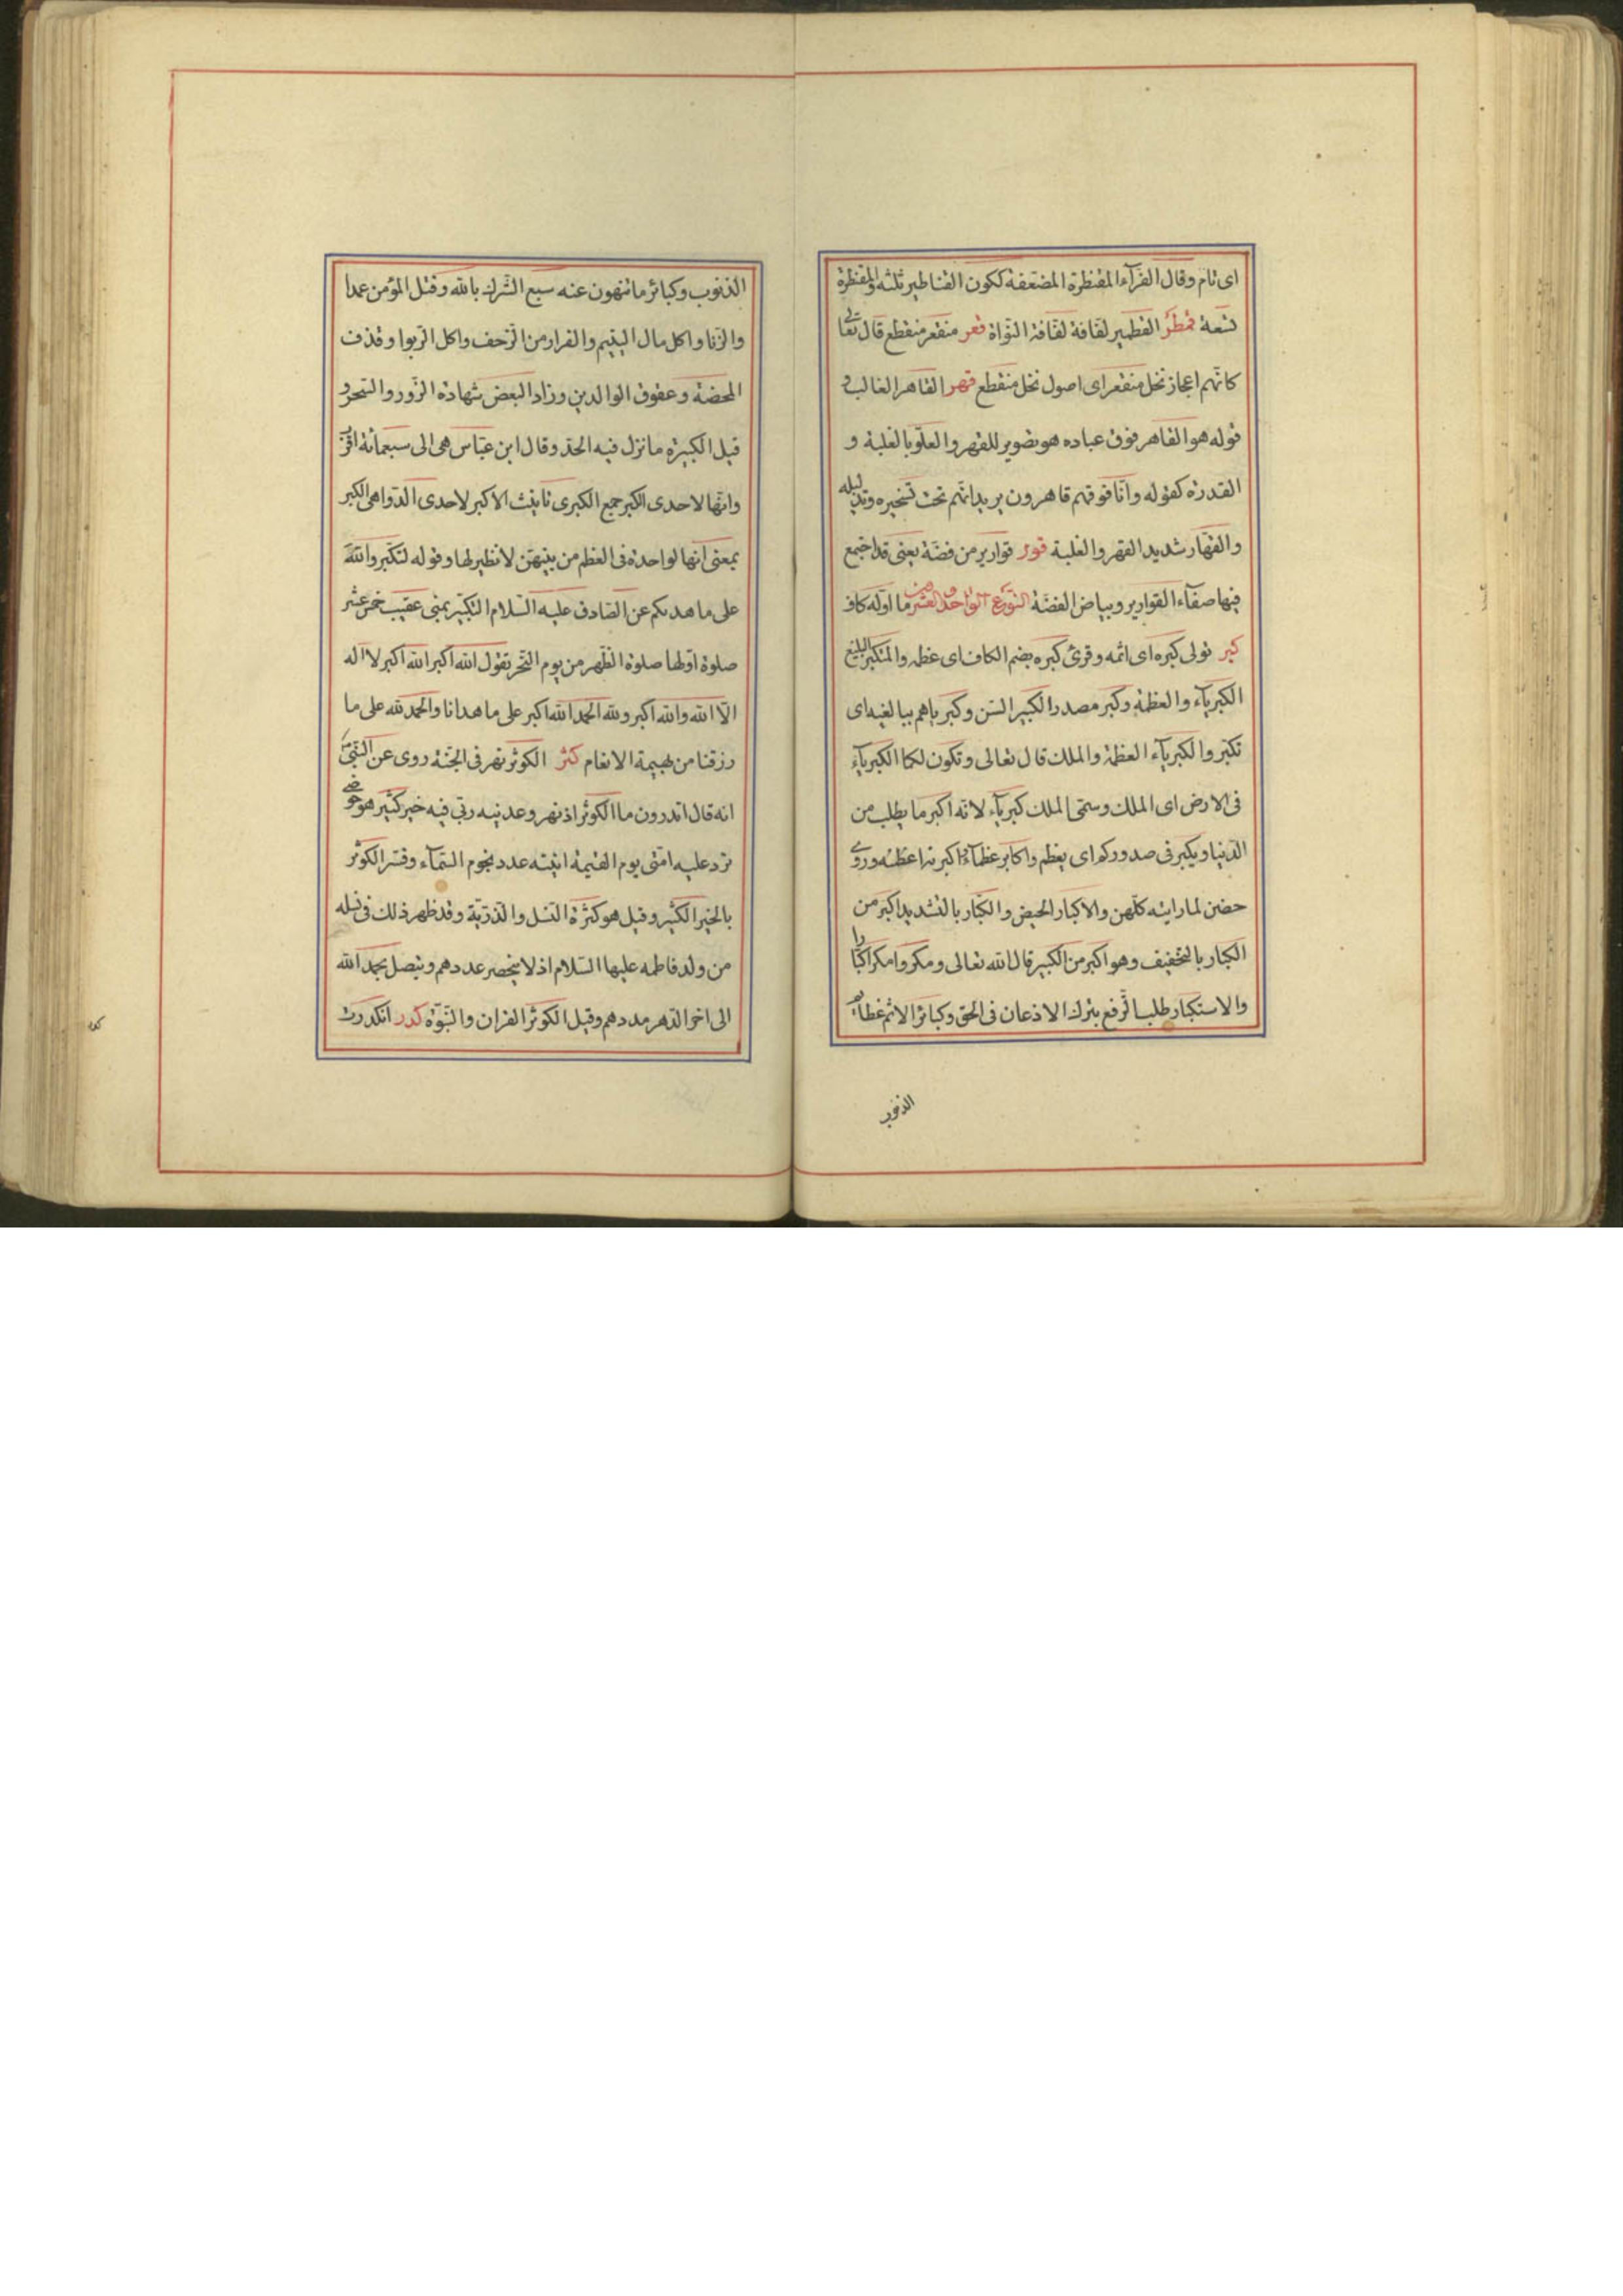 اى تام وقال الفرآء المقنطرة المضعفة ككون القناطير ثلثه والمقنطرة
تسعة قمطر القطمير لفافة لفافة النواة قعر منقعر منقطع قال تعالى
كانهم اعجاز نخل منقعر اى اصول نخل منقطع قهر القاهر الغالب و
قوله هو القاهر فوق عباده هو تصوير للقهر والعلو بالغلبة و
القدرة كقوله وانا فوقهم قاهرون يريد انهم تحت تسخيره وتذليله
والقهار شديد القهر والغلبة قور قوارير من فضة يعنى قد اجتمع
فيها صفآء القوارير وبياض الفضة النوع الواحد والعشرين ما اوله كاف
كبر تولى كبره اى اثمه وقرئ كبره بضم الكاف اى عظمه والمتكبر البليغ
الكبريآء والعظمة وكبر مصدر الكبير السن وكبر ياهم ببالغيه اى
تكبر والكبريآء العظمة والملك قال تعالى وتكون لكما الكبريآء
فى الارض اى الملك وسمى الملك كبريآء لانه اكبر ما يطلب من
الدنيا ويكبر فى صدوركم اى يعظم واكابر عظمآء واكبرنه اعظمنه وروى
حضن لما راينه كلهن والاكبار الحيض والكبار بالتشديد اكبر من
الكبار بالتخفيف وهو اكبر من الكبير قال الله تعالى ومكروا مكرا كبارا
والاستكبار طلب الترفع بترك الاذعان فى الحق وكبائر الاثم عظائم
الذنوب
الذنوب وكبائر ما تنهون عنه سبع الشرك بالله وقتل المؤمن عمدا
والزنا واكل مال اليتيم والفرار من الزحف واكل الربوا وقذف
المحصنة وعقوق الوالدين وزاد البعض شهادة الزور والسحر و
قيل الكبيرة ما نزل فيه الحد وقال ابن عباس هى الى سبعمائة اقرب
وانها لاحدى الكبر جمع الكبرى تانيث الاكبر لاحدى الدواهى الكبر
بمعنى انها لواحدة فى العظم من بينهن لا نظير لها وقوله لتكبروا الله
على ما هديكم عن الصادق عليه السلام التكبير بمنى عقيب خمس عشر
صلوة اولها صلوة الظهر من يوم النحر تقول الله اكبر الله اكبر لا اله
الا الله والله اكبر ولله الحمد الله اكبر على ما هدانا والحمد لله على ما
رزقنا من بهيمة الانعام كثر الكوثر نهر فى الجنة روى عن النبى
انه قال اتدرون ما الكوثر اذ نهر وعدنيه ربى فيه خير كثير هو حوضى
ترد عليه امتى يوم القيمة انيته عدد نجوم السمآء وفسر الكوثر
بالخير الكثير وقيل هو كثرة النسل والذرية وقد ظهر ذلك فى نسله
من ولد فاطمه عليها السلام اذ لا ينحصر عددهم ويتصل بحمد الله
الى اخر الدهر مددهم وقيل الكوثر القران والنبوة كدر انكدرت